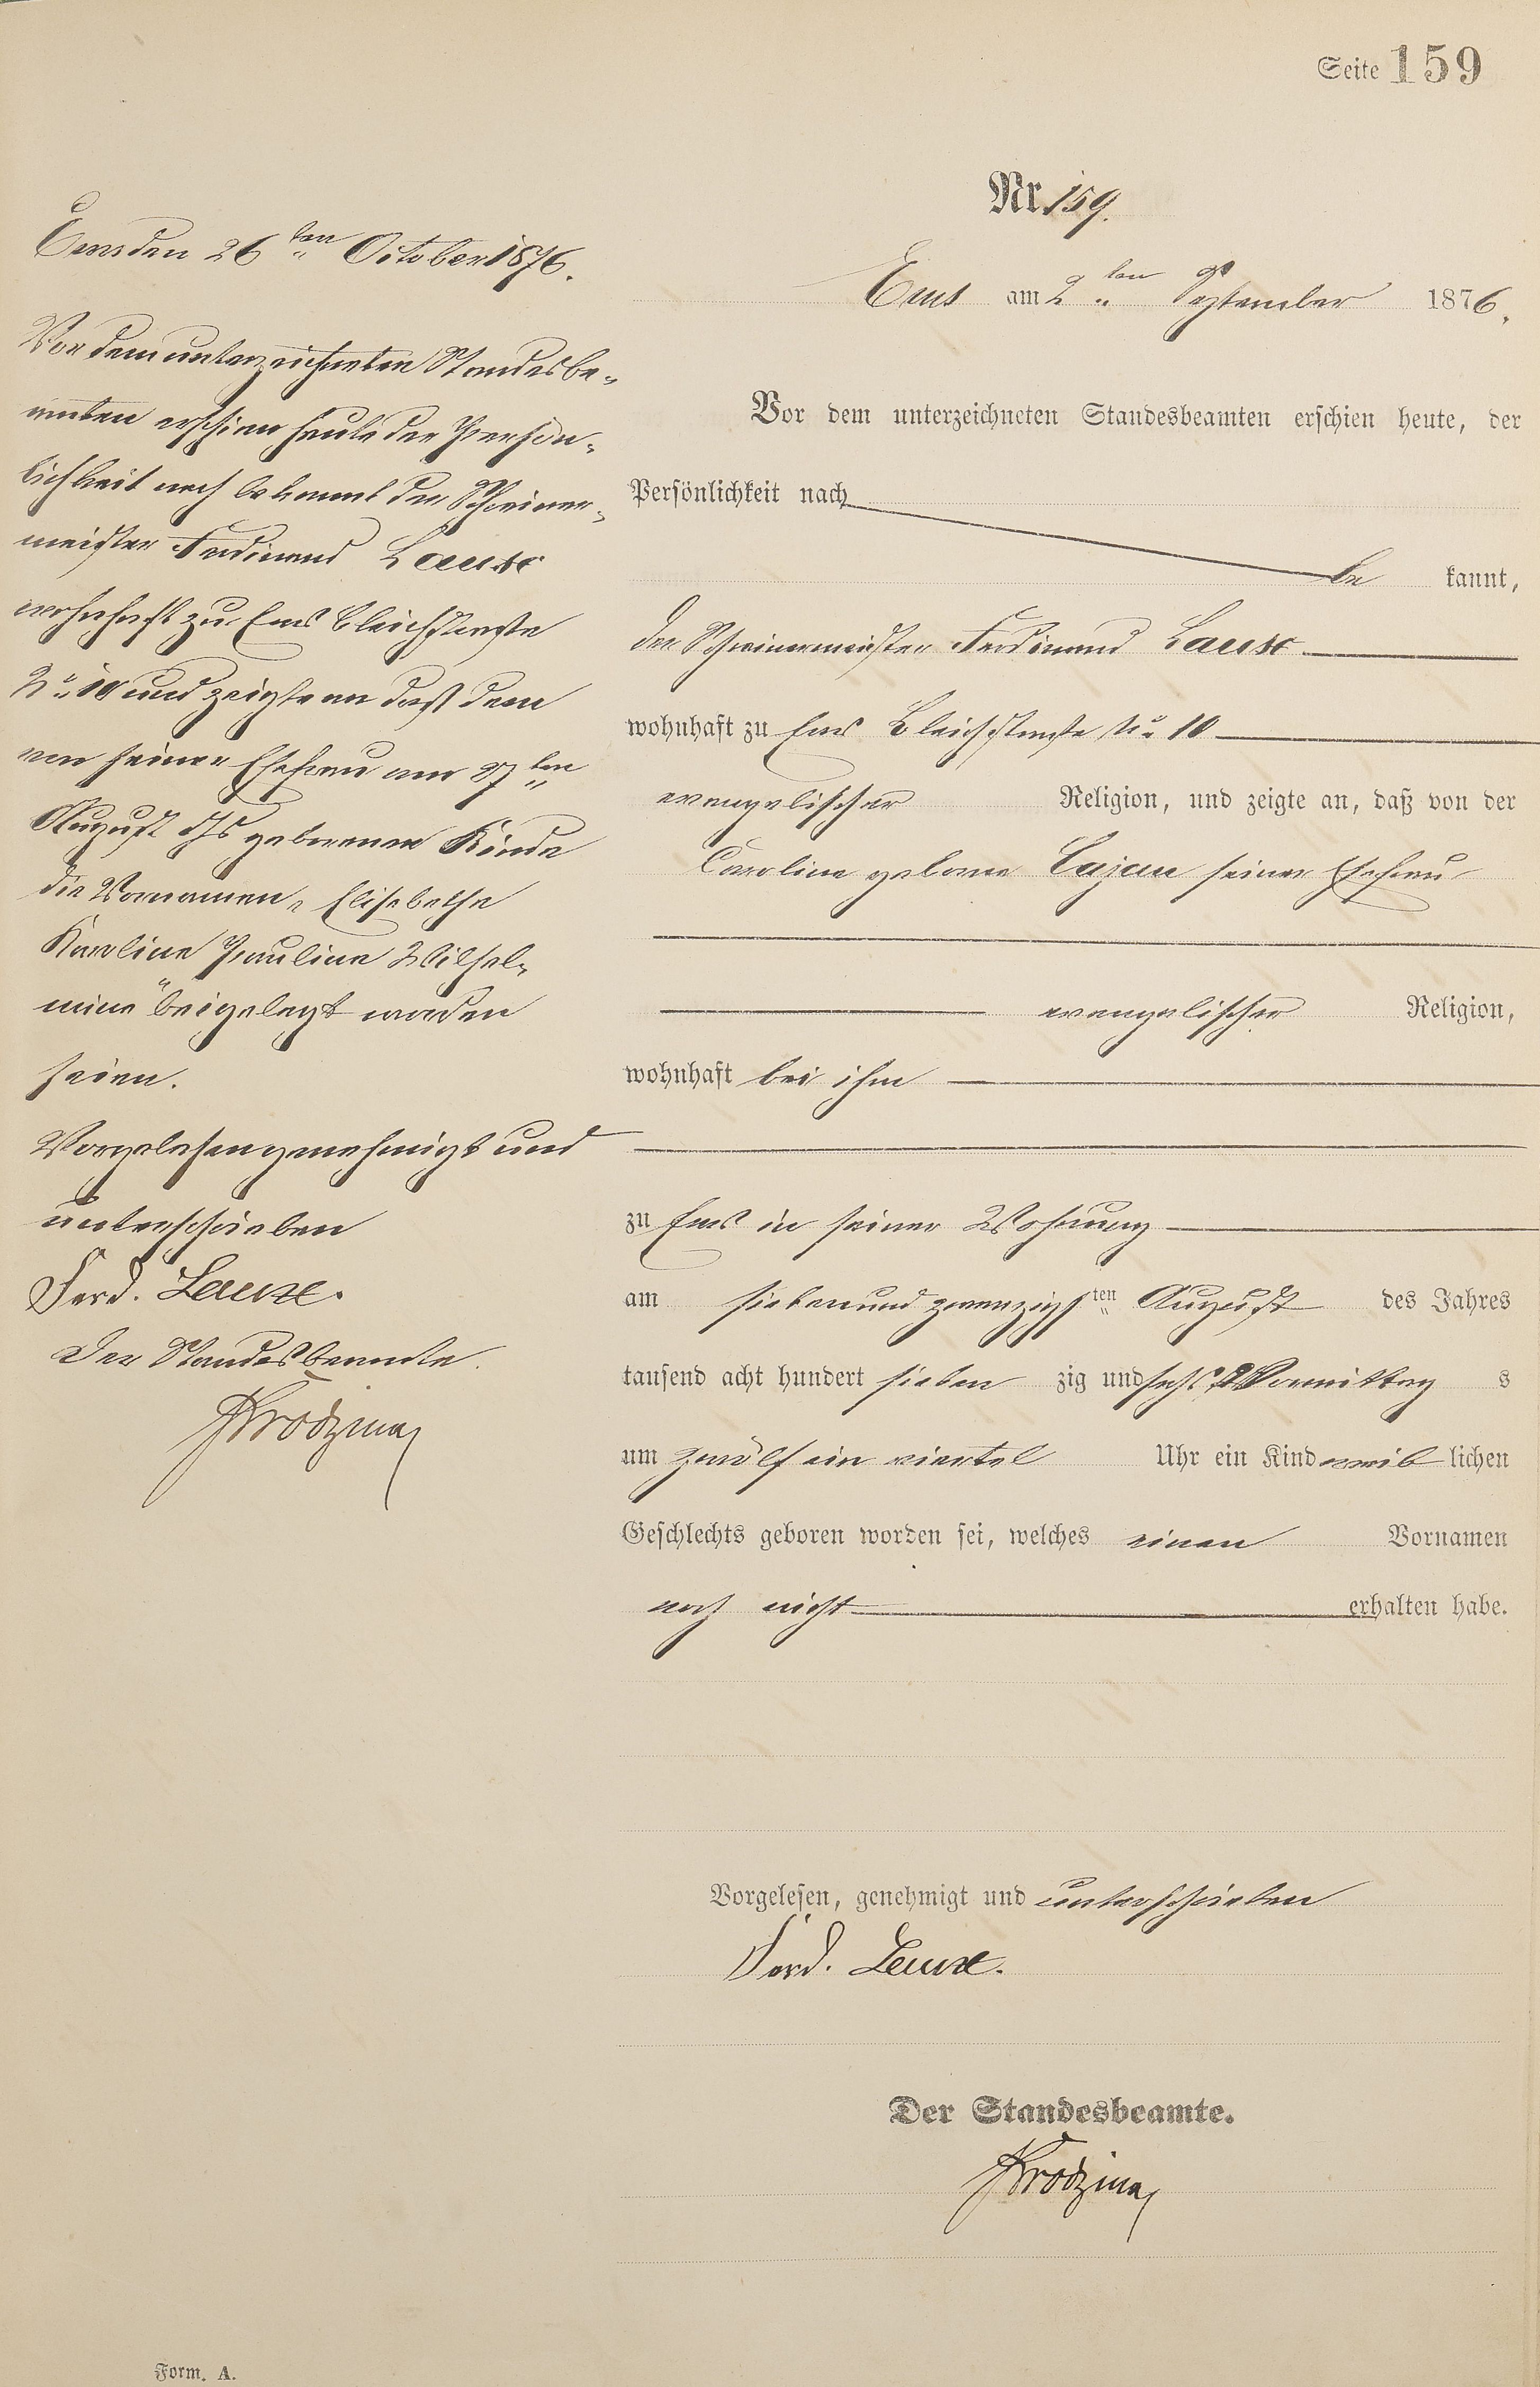 Seite 159
Nr. 159.
Ems am 2ten September 1876.
Vor dem unterzeichneten Standesbeamten erschien heute, der
Persönlichkeit nach
be kannt,
der Schreinermeister Ferdinand Lauxe
wohnhaft zu Ems Bleichstraße No 10
evangelischer Religion, und zeigte an, daß von der
Caroline geborne Cajan seiner Ehefrau
evangelischer Religion,
wohnhaft bei ihm
zu Ems in seiner Wohnung
am siebenundzwanzigsten August des Jahres
tausend acht hundert sieben zig und sechs Vormittag s
um zwölf ein viertel Uhr ein Kind weib lichen
Geschlechts geboren worden sei, welches einen Vornamen
noch nicht erhalten habe.
Vorgelesen, genehmigt und unterschrieben
Ferd. Lauxe.
Der Standesbeamte.
Ems den 26ten October 1876.
Vor dem unterzeichneten Standesbe-
amten erschien heute der Persön-
lichkeit nach bekannt der Schreiner-
meister Ferdinand Lauxe
wohnhaft zu Ems Bleichstraße
No 10 und zeigte an daß dem
von seiner Ehefrau am 27ten
August ds Js geborenen Kinde
die Vornamen „Elisabethe
Karoline Pauline Wilhel-
mine“ beigelegt worden
seien.
Vorgelesen genehmigt und
unterschrieben
Ferd. Lauxe.
Der Standesbeamte.
Form. A.